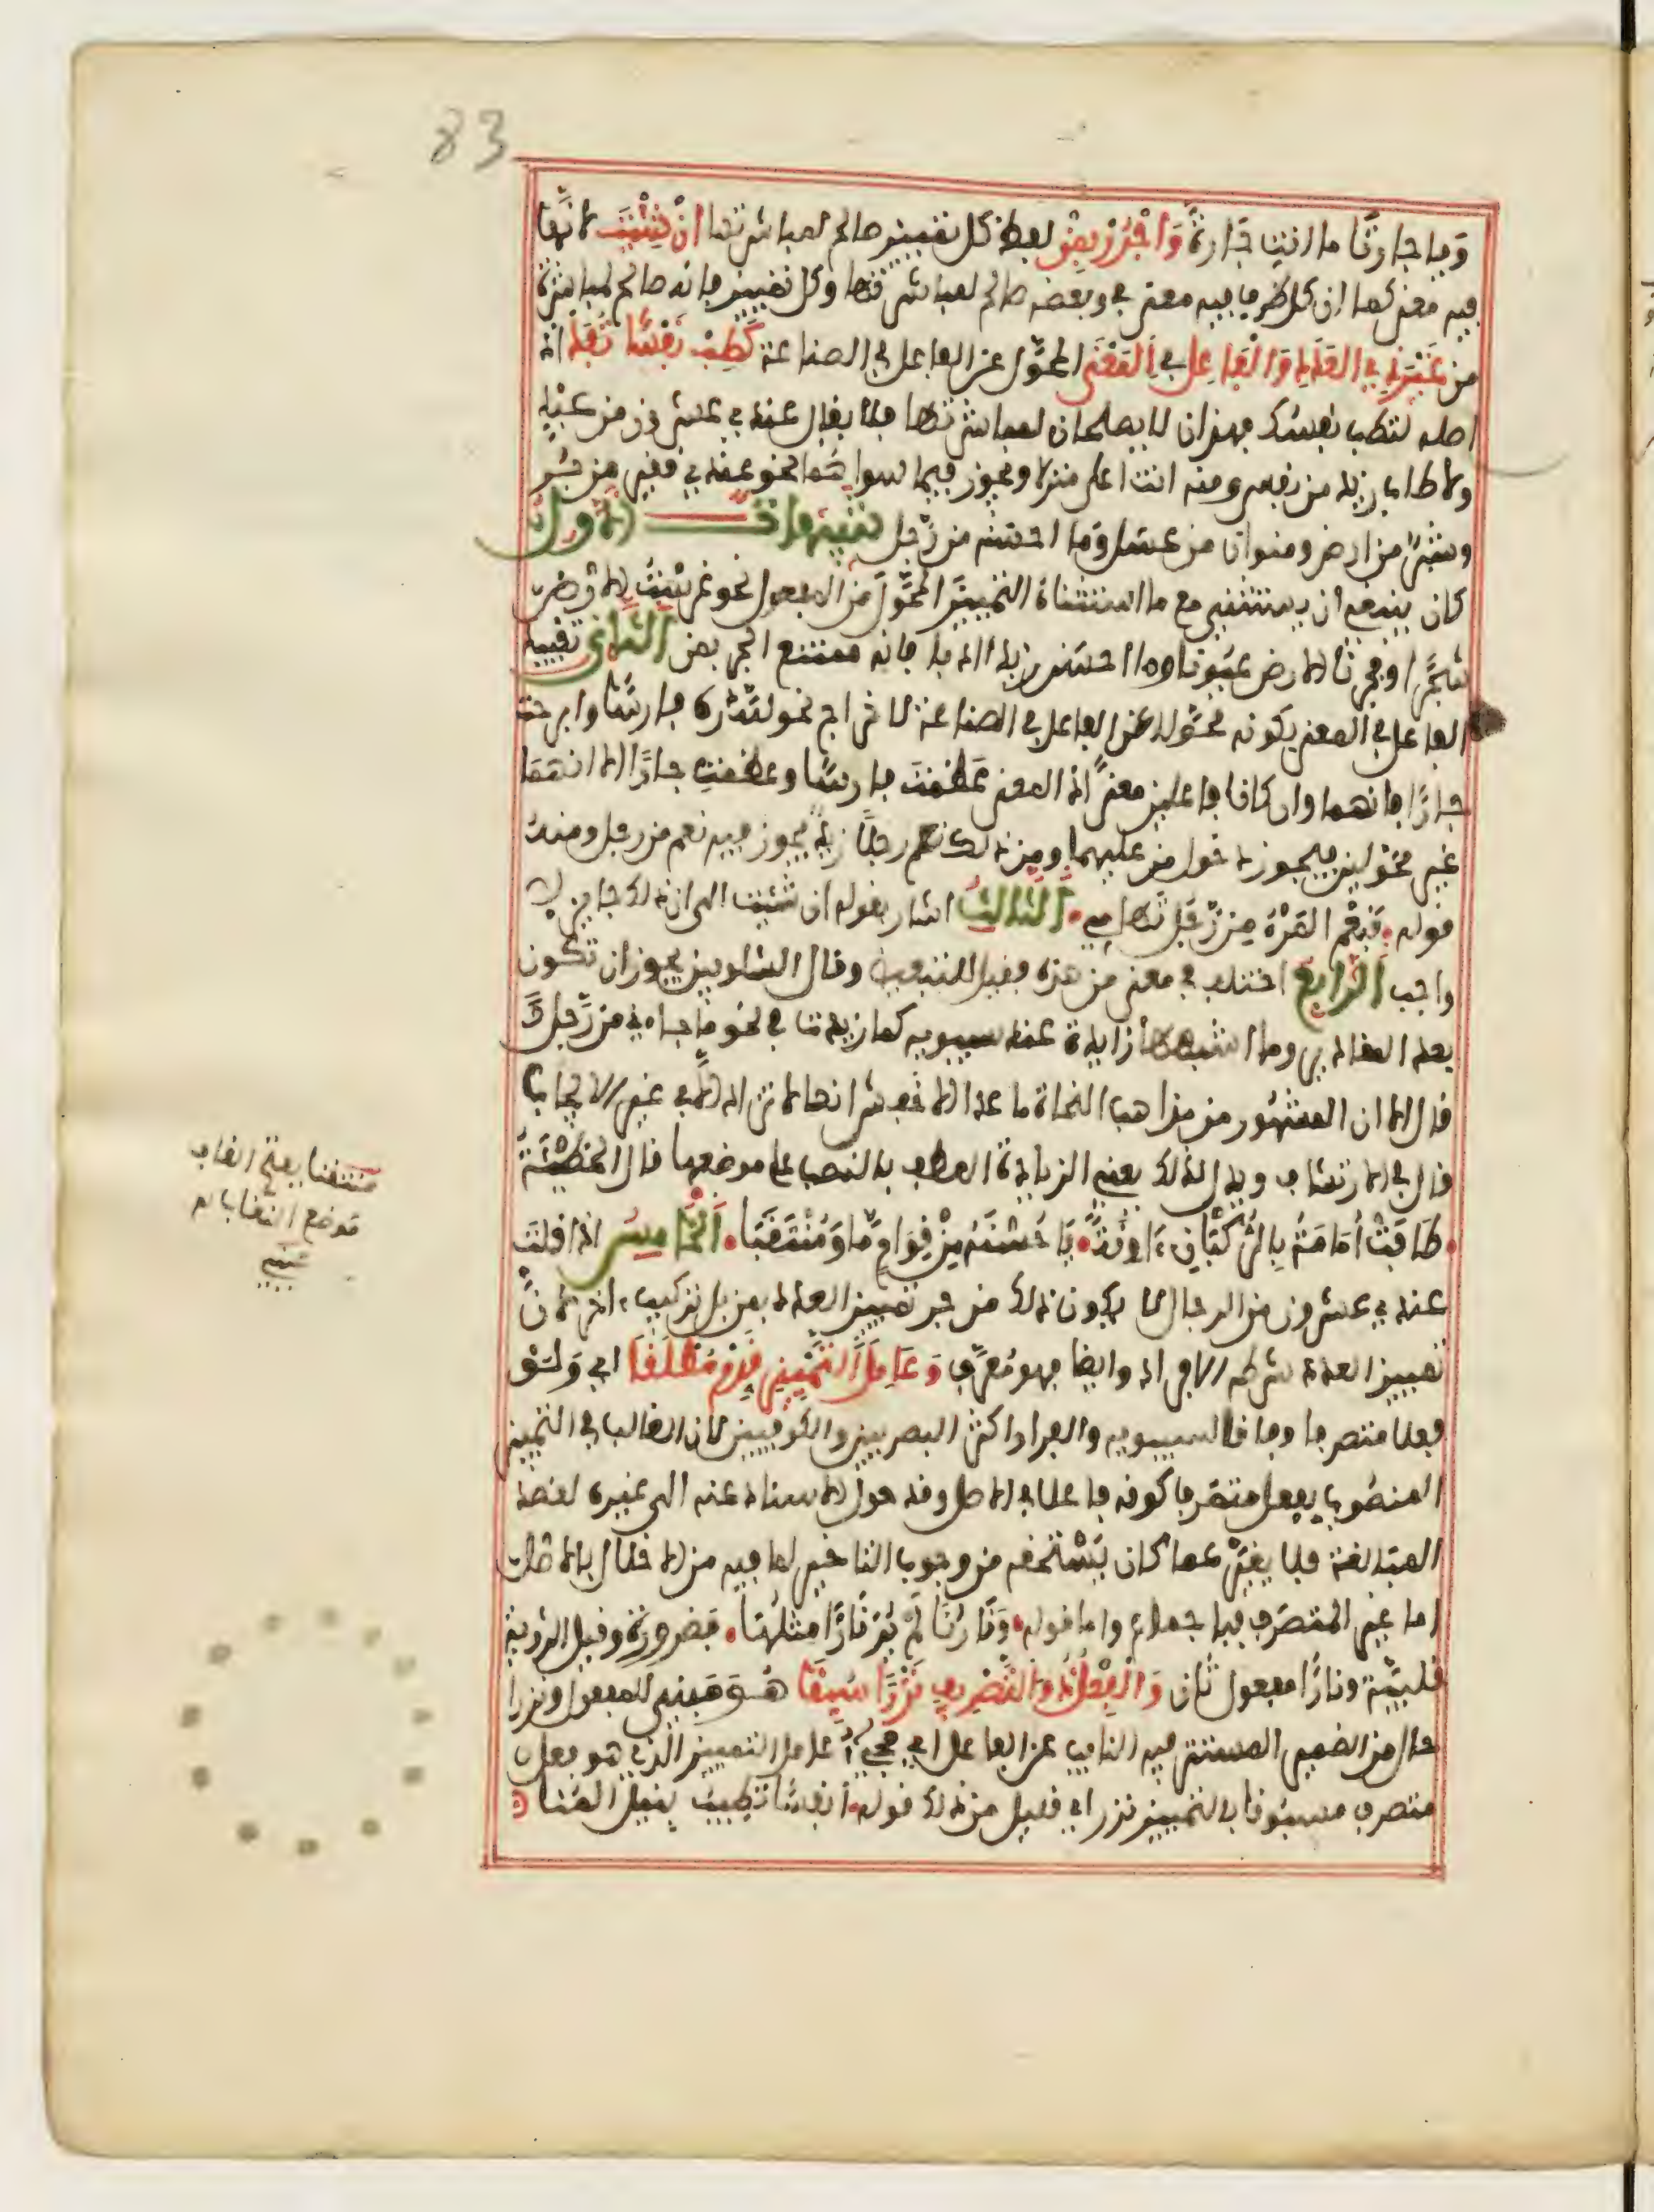 83
وَيا جارتا ما أنتِ جَارةً وَاجْرُرْ بِمِنْ لفظا كل تمييز صالح لمباشرتها إنْ شِئْتَ لأنها
فيه معنى كما ان كل ظرف فيه معنى في وبعضه صالح لمباشرتها وكل تمييز فإنه صالح لمباشرة
من غَيْرَ ذِي العَدَدِ وَالْفَاعِلِ فِي الْمَعْنَى المحوّل عن الفاعل في الصناعة كَطِبْ نَفْسًا تُفَدْ إذ
اصله لتطب نفسك فهذان لا يصلحان لمباشرتها فلا يقال عندي عشرون من عبد
ولا طاب زيد من نفس ومنه انت اعلى منزلا ويجوز فيما سواهما نحو عندي قفيز من بر
وشبر من ارض ومنوان من عسل وما احسنه من رجل تنبيهات الأول
كان ينبغي ان يستثني مع ما استثناه التمييز المحوّل من المفعول نحو غرست الأرض
شجرا وفجرنا الأرض عيونا وما احسن زيدا ادبا فإنه ممتنع الجر بمن الثاني تقييد
الفاعل في المعنى بكونه محولا عن الفاعل في الصناعة لاخراج نحو لله دره فارسا وابرحت
جارًا فانهما وان كانا فاعلين معنًى اذ المعنى عظمت فارسا وعظمت جارًا الا انهما
غير محولين فيجوز دخول من عليهما ومن ذلك نعم رجلا زيد يجوز فيه نعم من رجل ومنه
قوله فَنِعْمَ المَرْءُ مِنْ رَجُلٍ تَهَامِي الثالث اشار بقوله ان شئت الى ان ذلك جائز لا
واجب الرابع اختلف في معنى من هذه فقيل للتبعيض وقال الشلوبين يجوز ان تكون
بعد المقادير وما اشبهها زايدة عند سيبويه كما زيدت في نحو ما جاءني من رجل
قال الا ان المشهور من مذاهب النحاة ما عدا الأخفش انها لا تزاد الا في غير الايجاب
قال في الارتشاف ويدل لذلك يعني الزيادة العطف بالنصب على موضعها قال الحطيئة
طَافَتْ أُمَامَةُ بِالرُّكْبَانِ آوِنَةً يَا حُسْنَهُ مِنْ قِوَامٍ مَّا وَمُنْتَقَبَا الخامس اذا قلت
عندي عشرون من الرجال لا يكون ذلك من جر تمييز العدد بمن بل تركيب ءاخر لأن
تمييز العدد شرطه الافراد وايضا فهو معرف وَعَامِلَ التَّمْيِيزِ قَدِّمْ مُطْلَقَا اي ولو
فعلا متصرفا وفاقا لسيبويه والفراء واكثر البصريين والكوفيين لان الغالب في التمييز
المنصوب بفعل متصرف كونه فاعلا في الاصل وقد حول الاسناد عنه الى غيره لقصد
المبالغة فلا يغير عما كان يستحقه من وجوب التاخير لما فيه من الاخلال بالاصل
اما غير المتصرف فبإجماع واما قوله وَنَارُنَا لَمْ يُرَ نَارًا مِثْلُهَا فضرورة وقيل الرؤية
قلبية ونارًا مفعول ثان وَالْفِعْلُ ذُو التَّصْرِيفِ نَزْرًا سُبِقَا هو مبني للمفعول ونزرا
حال من الضمير المستتر فيه النايب عن الفاعل اي مجيء عامل التمييز الذي هو فعل
متصرف مسبوقا بالتمييز نزر اي قليل من ذلك قوله أنفسًا تطيب بنيل المنا
منتقبا بفتح القاف
موضع النقاب اه
عيني